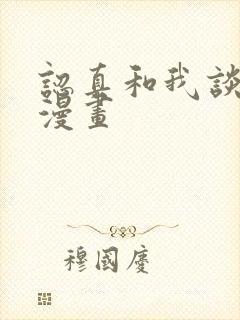 認真和我談
漫畫
穆國慶